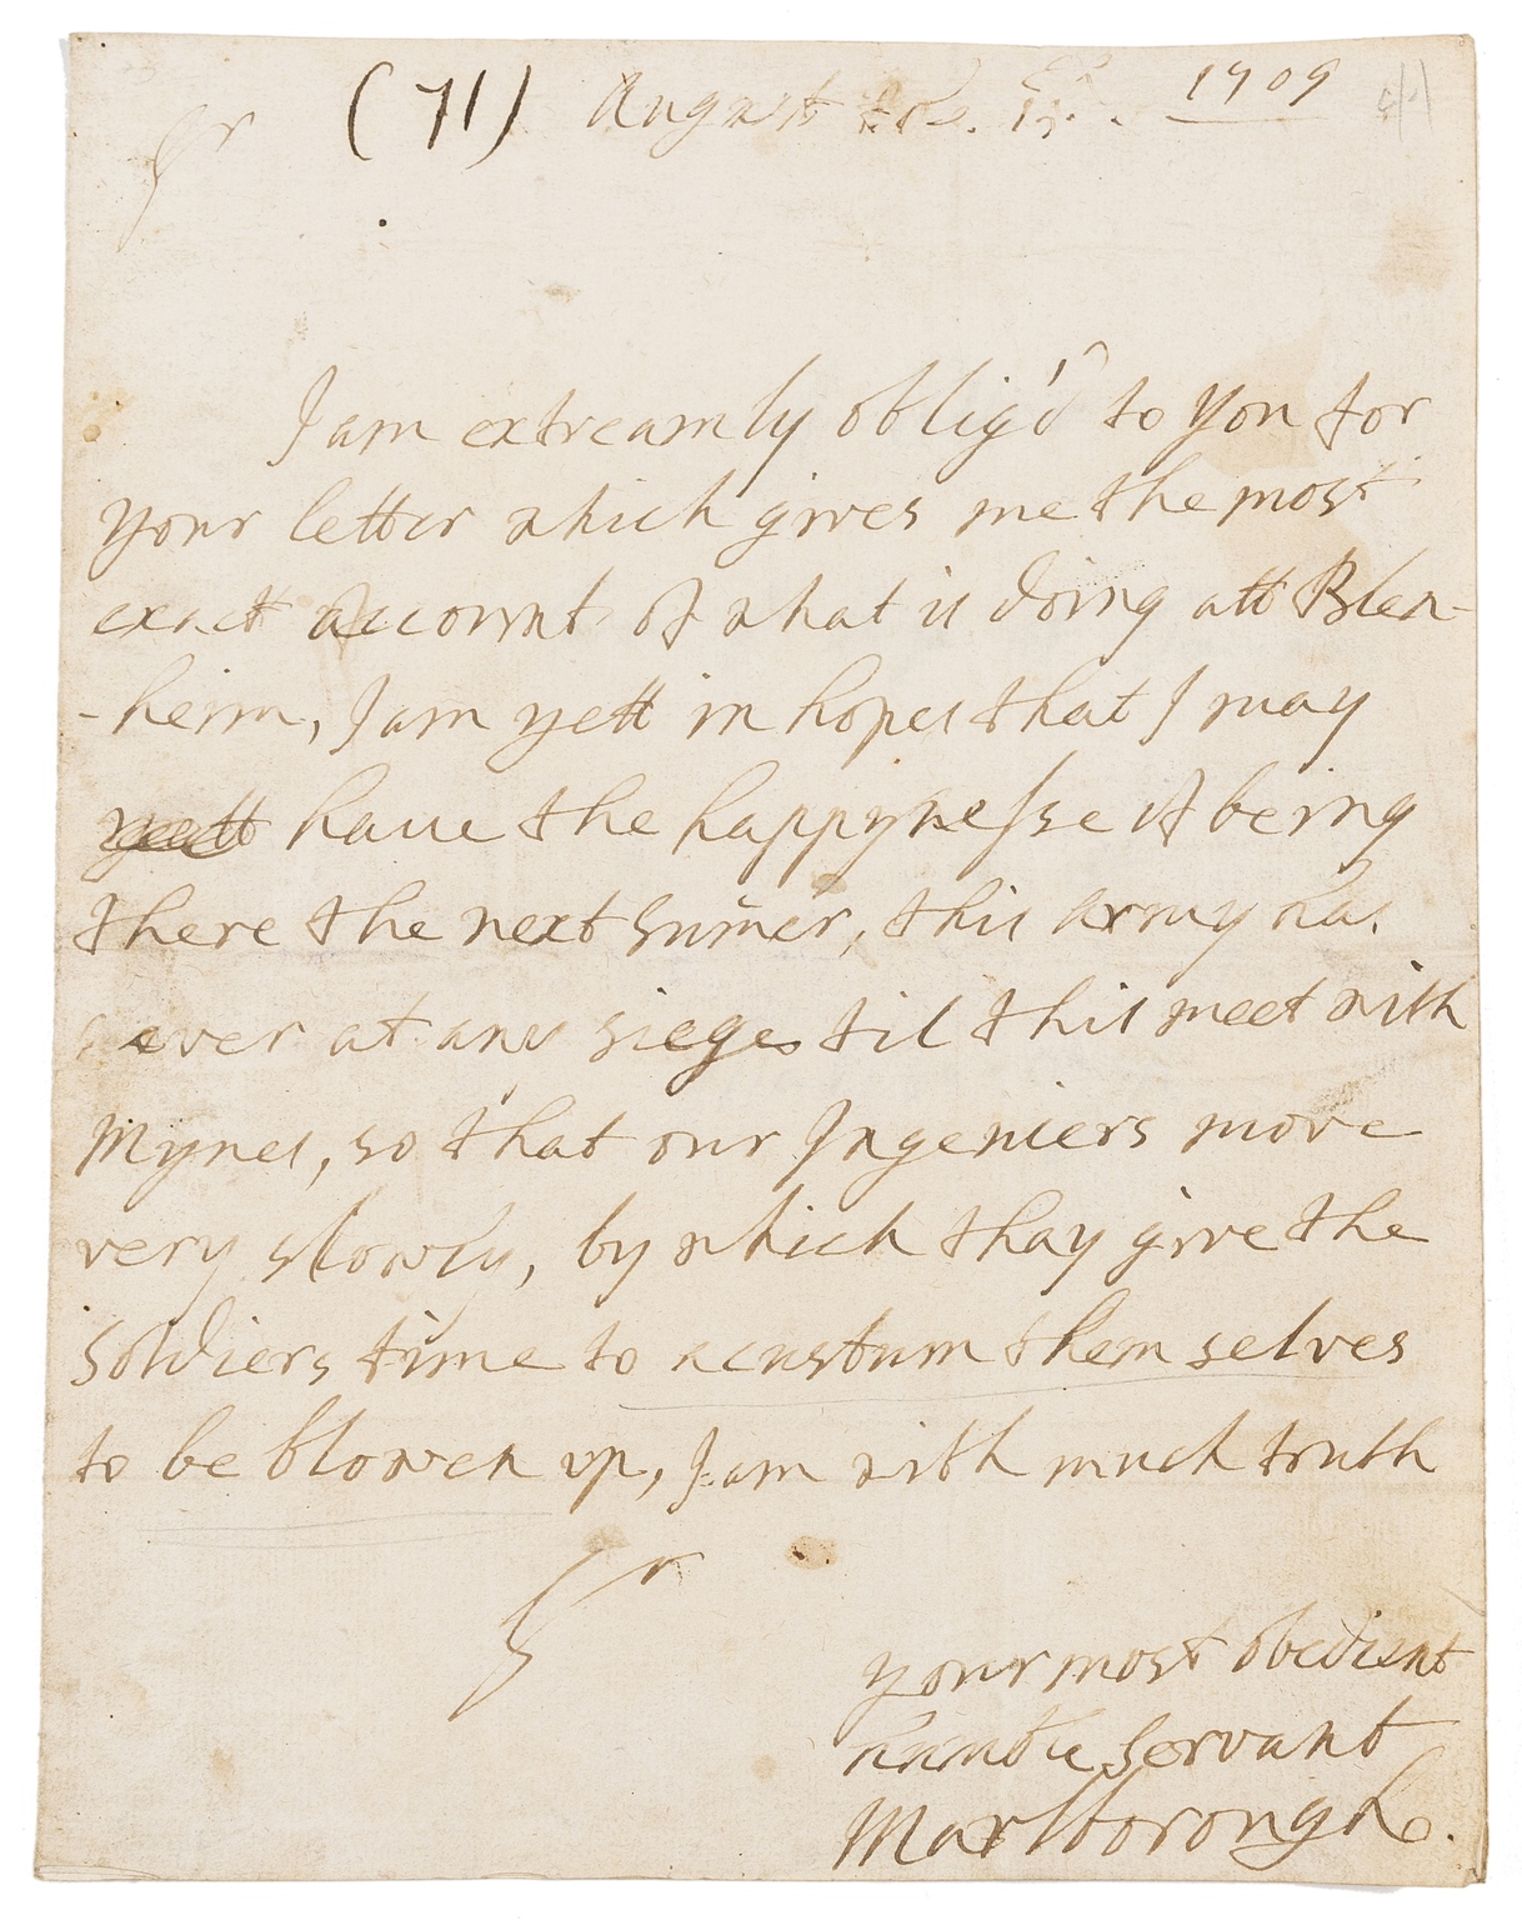 Sr (71) August 1709
I am extreamly oblig'd to you for
your letter which gives me the most
exactt account of what is doing att Blen-
-heim, I am yett in hopes that I may
yett have the happynesse of being
there the next Sumer, this army has
never at any sieges til this meet with
Mynes, so that our Ingeniers move
very slowly, by which thay give the
soldiers time to acustum them selves
to be blowen up, I am with much truth
Sr
your most obedient
humble servant
Marlborough.